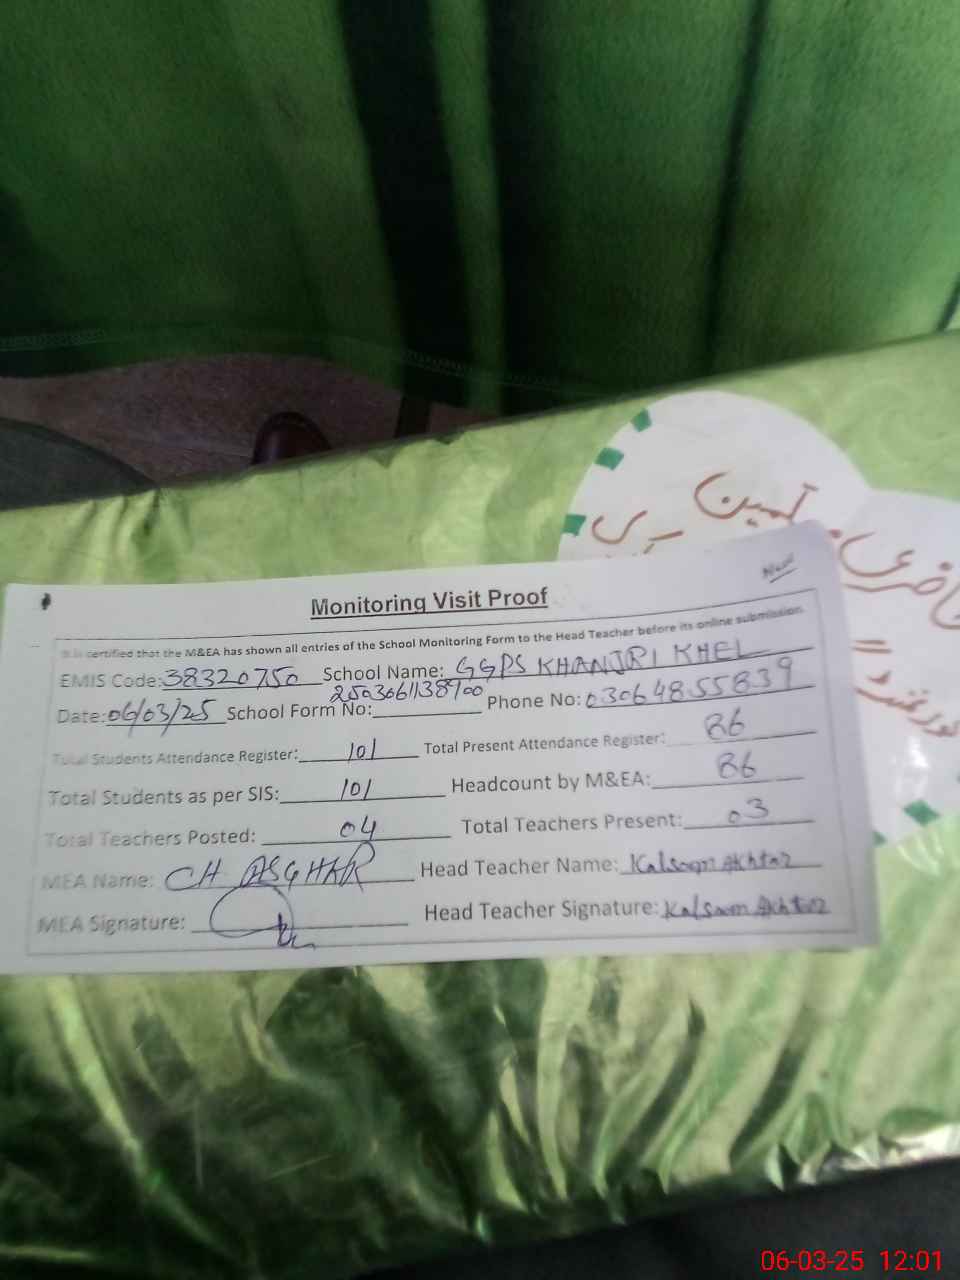 آمین
حاضری
New
Monitoring Visit Proof
It is certified that the M&EA has shown all entries of the School Monitoring Form to the Head Teacher before its online submission.
EMIS Code: 38320750 School Name: GGPS KHANJRI KHEL
Date: 06/03/25 School Form No: 2503061138900 Phone No: 03064855839
Total Students Attendance Register: 101 Total Present Attendance Register: 86
Total Students as per SIS: 101 Headcount by M&EA: 86
Total Teachers Posted: 04 Total Teachers Present: 03
MEA Name: CH ASGHAR Head Teacher Name: Kalsoom Akhtar
MEA Signature: Head Teacher Signature: Kalsoom Akhtar
06-03-25 12:01